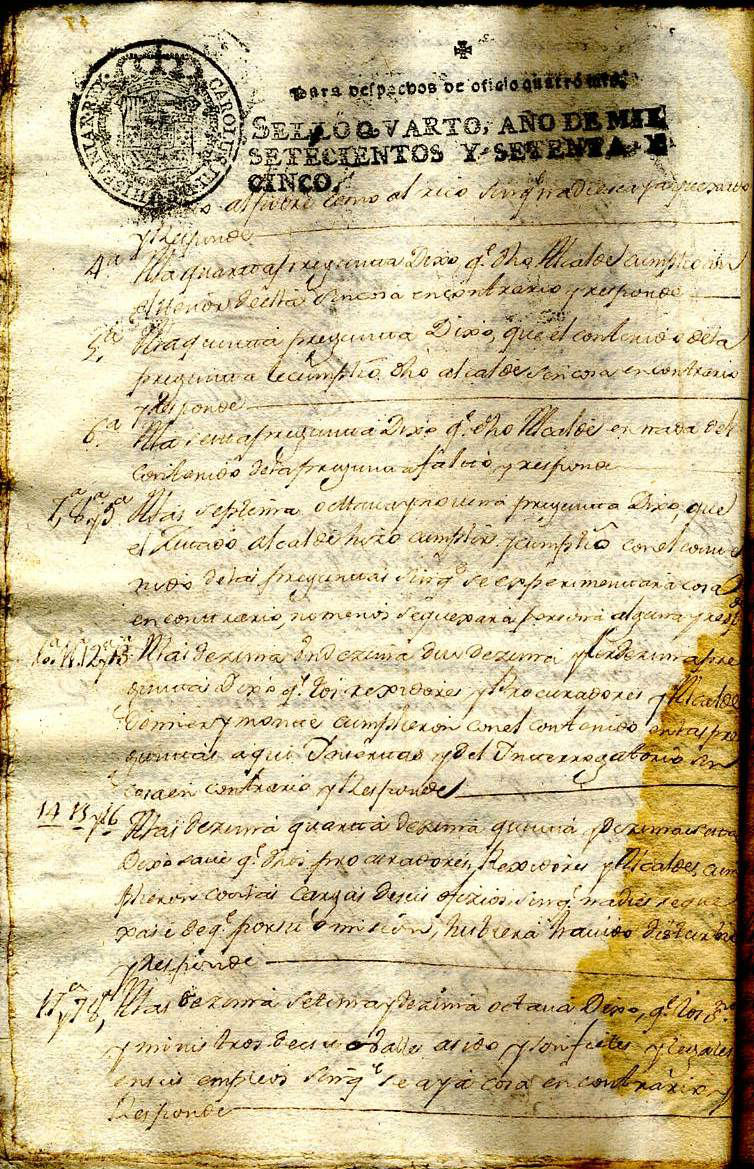 CAROLUS III D G HISPANIAR REX
Para despachos de oficio quatro mrs.
SELLO QVARTO, AÑO DE MIL
SETECIENTOS Y SETENTA Y
CINCO.
al pobre como al rico sin qᵉ nadie se
y Responde
4ᵃ A la quarta pregunta Dixo qᵉ dho Alcalde cumplio con
el tenor de ella sin cosa en contrario y responde
5ᵃ A la quinta pregunta Dixo, que el contenido de la
pregunta le cumplio dho alcalde sin cosa en contrario
y Responde
6ᵃ A la sexta pregunta Dixo qᵉ dho Alcalde en nada del
contenido de la pregunta faltó, y responde
7ᵃ, 8ᵃ y 9ᵃ A las septima octtava y novena pregunta Dixo, que
el zitado alcalde hizo cumplir y cumplio con el conte
nido de las preguntas sin qᵉ se experimentara cosa
en contrario, no menos se quexara persona alguna y resp
10ᵃ 11. 12ᵃ y 13ᵃ A las dezima undezima duodezima y terdezima pre
guntas Dixo qᵉ los rexidores y Procuradores y Alcalde
de mier y monte cumplieron con el contenido en las pre
guntas aqui Insertas y del Interrogatorio sin
cosa en contrario y Responde
14 15 y 16 A las dezima quarta dezima quinta y dezima sexta
Dixo save qᵉ dhos procuradores, Rexidores y Alcaldes cum
plieron con las cargas de sus ofizios, sin qᵉ nadie se que
xase de qᵉ por su omision, hubiera havido
y Responde
17ᵃ y 18ᵃ A las dezima setima y dezima octava Dixo, qᵉ los
y ministros de este Valle a sido y son fieles y legales
en sus empleos sin qᵉ se aya cosa en contrario y
Responde